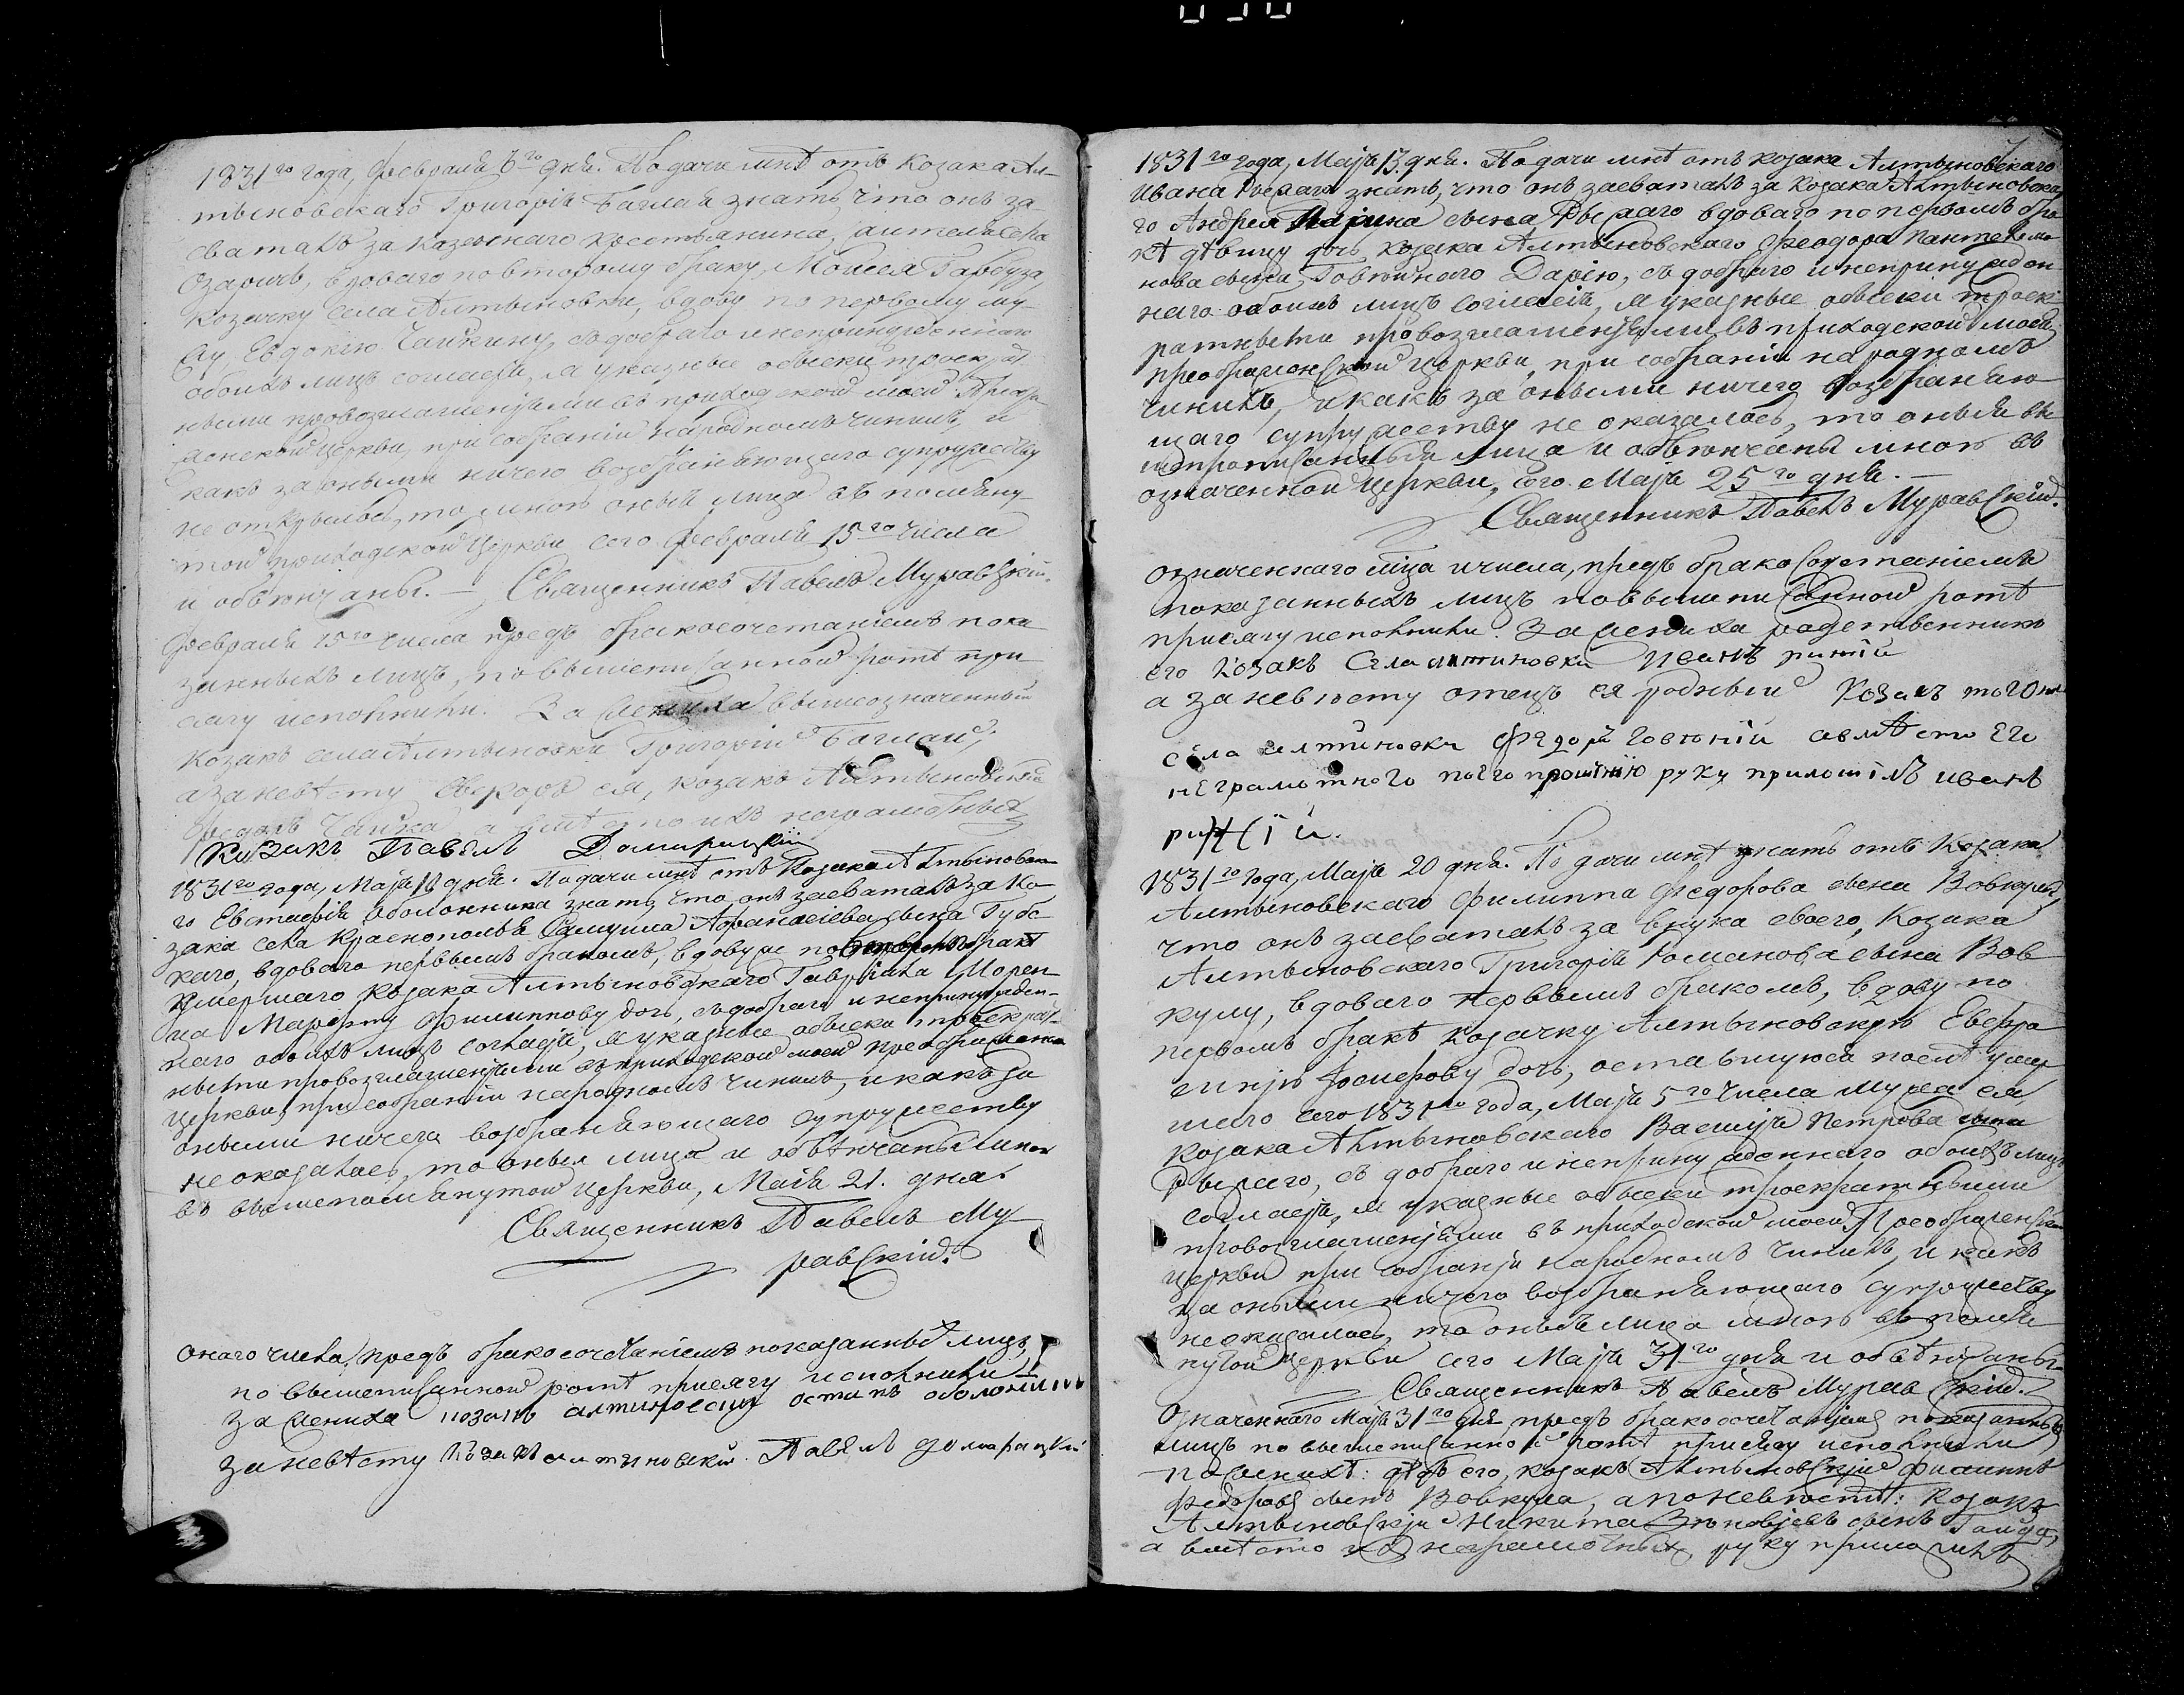 1831го года, Февраля 6го дня. Подачи мнѣ отъ Козака Ал-
тыновскаго Григорія Баглая знать что онъ за-
сваталъ за казеннаго крестьянина, жителя
вдоваго по второму браку, Моисея Гарбуза,
козачку села Алтыновки, вдову по первому му-
жу Евдокію Чайкину, съ добраго и непринужденнаго
обоихъ лицъ согласія, я указные обыски троекрат
ными провозглашеніями въ приходской моей Преобра
женской Церкви, при собраніи народномъ чинилъ, и
какъ за оными ничего возбраняющаго супружеству
не открылось, то мною оные лица въ помяну
той приходской Церкви сего февраля 15го числа
и обвѣнчаны. — Священникъ Павелъ Муравскій.
Февраля 15го числа предъ бракосочетаніемъ пока
занныхъ лицъ, по вышеписанной ротѣ при
сягу исполнили. За жениха вышеозначенный
Козакъ села Алтыновки Григорій Баглай,
а за невѣсту Свекоръ ея, козакъ Алтыновскій
Чайка а вмѣсто ихъ неграмотныхъ
Козакъ Павелъ Домарацкій
1831го года, Маія дня. Подачи мнѣ отъ Козака Алтыновска
го Евстафія Оболонника знать, что онъ засваталъ за Ко
зака села Краснополья Самуила Афанасіева сына Губс
каго, вдоваго первымъ бракомъ, вдову же по браку
умершаго Козака Алтыновскаго Гаврiила Морен
ца Марфу Филиппову дочь, съ добраго и непринужден-
наго обоихъ лицъ согласія, я указные обыски троекрат-
ными провозглашеніями въ приходской моей Преображенско
Церкви, при собраніи народномъ чинилъ, и какъ за
оными ничего возбраняющаго супружеству
не оказалось, то оныя лица и обвѣнчаны мною
въ вышепомянутой Церкви, Маія 21. дня.
Священникъ Павелъ Му
равскій.
Онаго числа, предъ бракосочетаніемъ показанныхъ лицъ,
по вышеписанной ротѣ присягу исполнили
За жениха козакъ алтиновскій остапъ оболоннікъ
за невѣсту Козакъ алтыновскій Павелъ домарацкій
1831го года, Маія 13. дня. Подачи мнѣ отъ козака Алтыновскаго
Ивана Рыжаго знать, что онъ засваталъ за Козака Алтыновска
го Андрея сына Рыжаго вдоваго по первомъ бра
кѣ дѣвицу дочь козака Алтыновскаго Феодора Пантелемо
нова сына Говтянаго Дарію, съ добраго и непринужден
наго обоихъ лицъ согласія, я указные обыски троек
ратными провозглашеніями въ приходской моей
преображенской Церкви, при собраніи народномъ
чинилъ, и какъ за оными ничего возбраняю
щаго супружеству не оказалось, то оныя вы
шепрописанныя лица и обвѣнчаны мною въ
означенной Церкви, сего Маія 25го дня. —
Священникъ Павелъ Муравскій.
Означеннаго мѣсяца и числа, предъ бракосочетаніемъ
показанныхъ лицъ по вышеписанной ротѣ
присягу исполнили. За жениха родственникъ
его Козакъ Села алтиновки иванъ рижій
а за невѣсту отецъ ея родный Козакъ того же
села алтиновки федоръ говтяній авмѣсто его
неграмотного поего прошенію руку приложилъ иванъ
рижій.
1831го года, Маія 20 дня. Подачи мнѣ знать отъ Козака
Алтыновскаго Филиппа Федорова сына Вовкулы,
что онъ засваталъ за внука своего, Козака
Алтыновскаго Григорія Романова сына Вов
кулу, вдоваго первымъ бракомъ, вдову по
первомъ бракѣ козачку Алтыновскую Евфро
синію дочь, оставшуюся послѣ умер
шаго сего 1831го года, Маія 5го числа мужа ея
Козака Алтыновскаго Василія Петрова сына
Рыжаго, съ добраго и непринужденнаго обоихъ лицъ
согласія, я указные обыски троекратными
провозглашеніями въ приходской моей Преображенской
Церкви при собраніи народномъ чинилъ, и какъ
за оными ничего возбраняющаго супружеству
не оказалось, то оныя лица мною въ помя
нутой Церкви сего Маія 31го дня и обвѣнчаны.
Священникъ Павелъ Муравскій.
Означеннаго Маія 31го дня предъ бракосочетаніемъ показанныхъ
лицъ по вышеписанной ротѣ присягу исполнили
по женихѣ: дѣдъ его, козакъ Алтыновскій Филиппъ
Федоровъ сынъ Вовкула, а по невѣстѣ: козакъ
Алтыновскій Никита Зѣновіевъ сынъ Гайда,
а вмѣсто ихъ неграмотныхъ, руку приложилъ